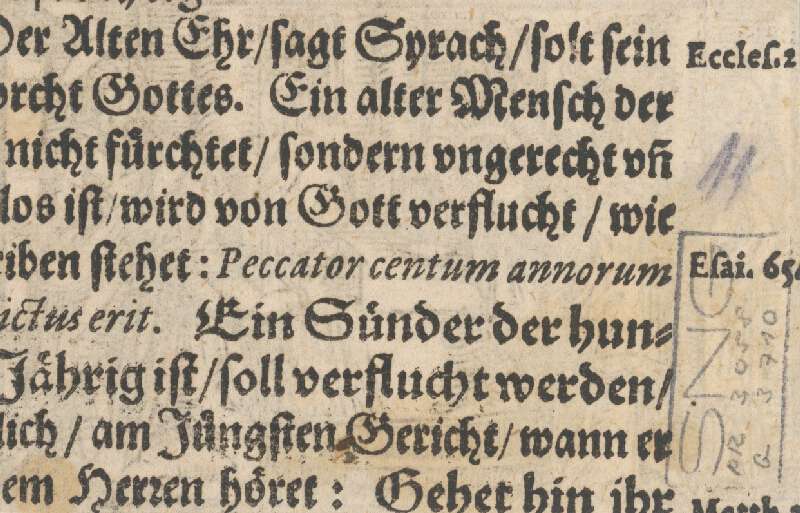 Der Alten Ehr/sagt Syrach/solt sein Eccles.2
orcht Gottes. Ein alter Mensch der
nicht fürchtet/ sondern vngerecht vn̄
los ist/wird von Gott verflucht / wie
iben stehet: Peccator centum annorum Esai. 65
ictus erit. Ein Sünder der hun-
Jährig ist/soll verflucht werden/
lich / am Jüngsten Gericht/ wann er
em Herren höret: Gehet hin ihr Matth.